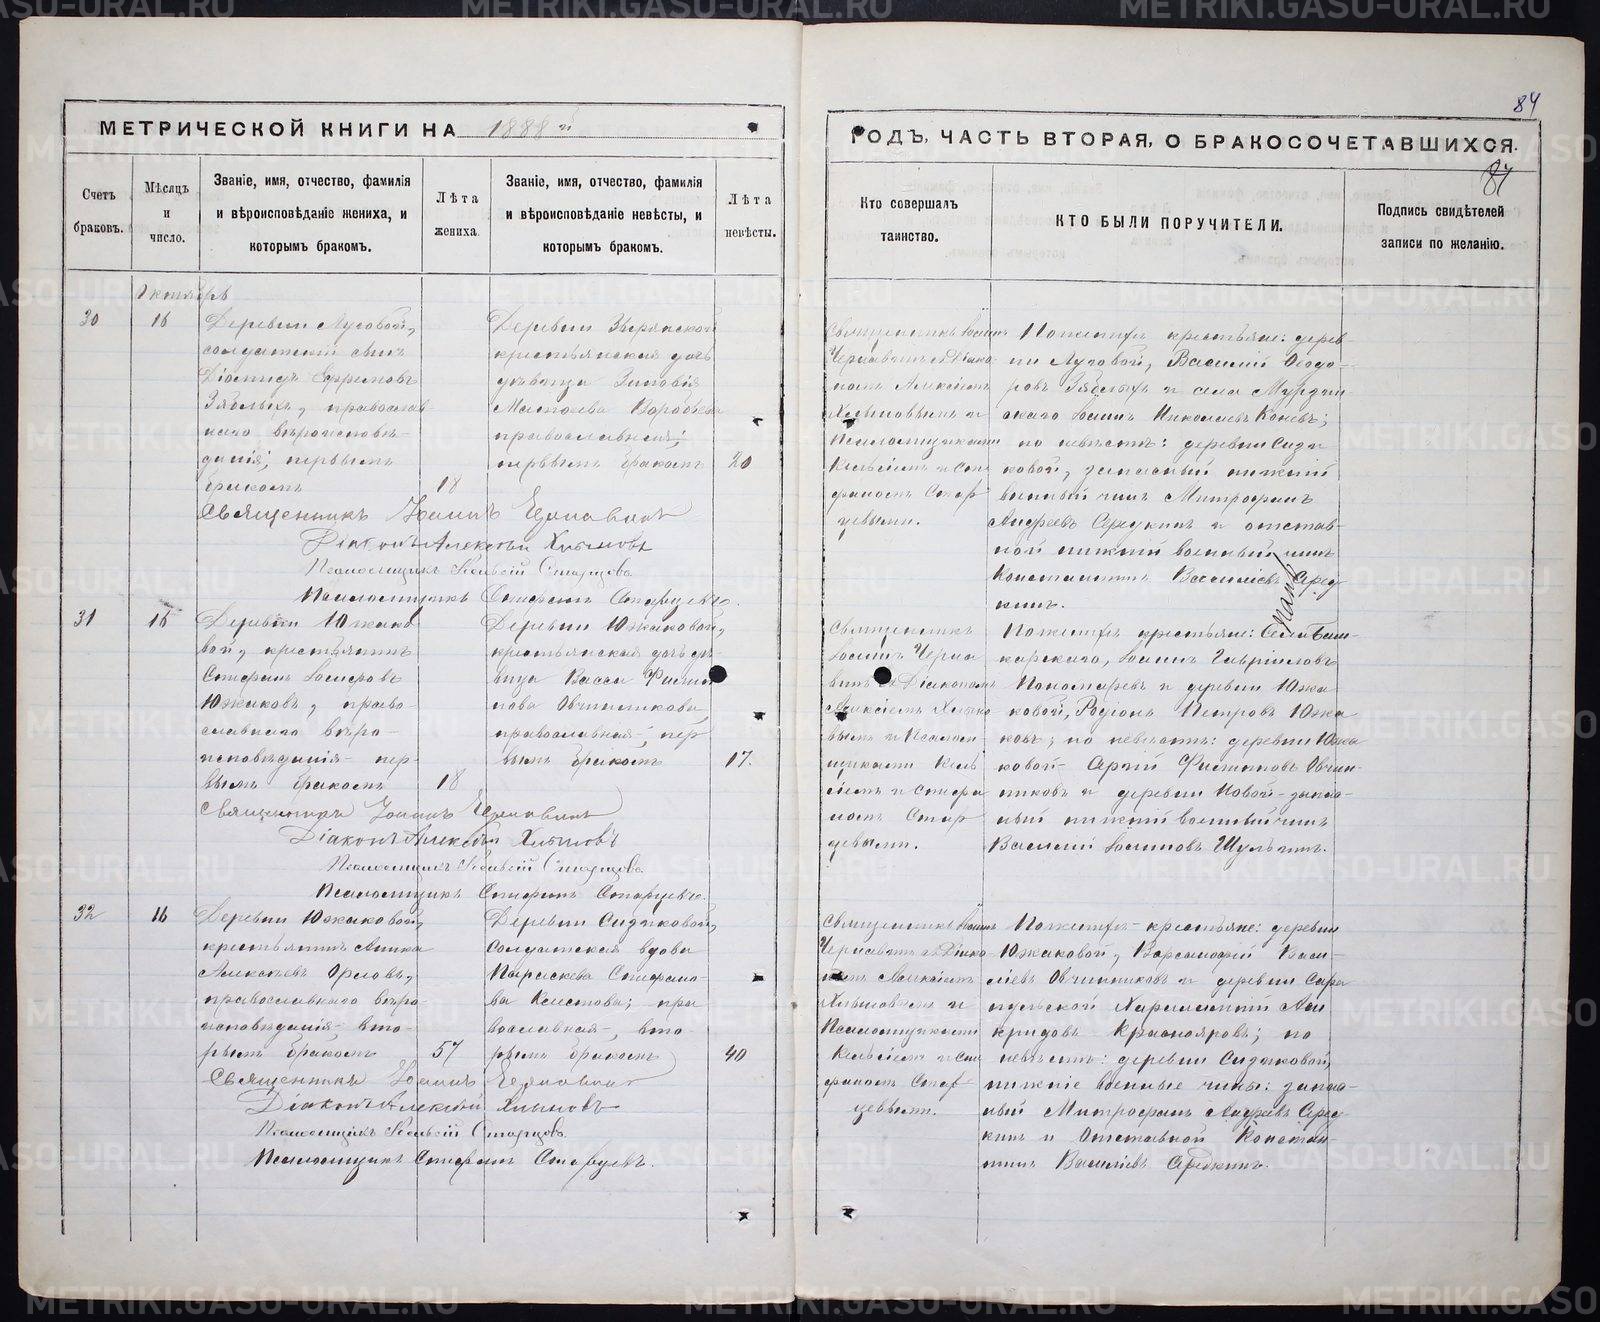 METRIKI.GASO-URAL.RU
84
МЕТРИЧЕСКОЙ КНИГИ НА 1888 й
ГОДЪ, ЧАСТЬ ВТОРАЯ, О БРАКОСОЧЕТАВШИХСЯ.
84
Счетъ браковъ.
Мѣсяцъ и число.
Званіе, имя, отчество, фамилія и вѣроисповѣданіе жениха, и которымъ бракомъ.
Лѣта жениха.
Званіе, имя, отчество, фамилія и вѣроисповѣданіе невѣсты, и которымъ бракомъ.
Лѣта невѣсты.
Кто совершалъ таинство.
КТО БЫЛИ ПОРУЧИТЕЛИ.
Подпись свидѣтелей записи по желанію.
Октябрь
30
16
Деревни Луговой,
солдатскій сынъ
Ефремовъ
Зяблыхъ, православ
наго вѣроисповѣ-
данія; первымъ
бракомъ
18
Деревни
крестьянская дочь
дѣвица Зиновія
Матѳеева Воробьева
православная;
первымъ бракомъ
20
Священникъ Іоаннъ
Чернавинъ съ Діако-
номъ Алексіемъ
Хлыновымъ и
Псаломщиками
и Сте
фаномъ Стар
цевыми.
По женихѣ крестьяне: дерев
ни Луговой, Василій Ѳеодо-
ровъ Зяблыхъ и села Мурзин
скаго Іоаннъ Николаевъ Коневъ;
по невѣстѣ: деревни Сизи
ковой, запасный нижній
военный чинъ Митрофанъ
Андреевъ Середкинъ и отстав-
ной нижній военный чинъ
Константинъ Василіевъ Серед
кинъ.
Священникъ Іоаннъ Чернавинъ
Діаконъ Алексѣй Хлыновъ
Псаломщикъ Старцовъ
Псаломщикъ Стефанъ Старцевъ.
31
16
Деревни Южако
вой, крестьянинъ
Стефанъ
Южаковъ, право-
славнаго вѣро-
исповѣданія пер-
вымъ бракомъ
18
Деревни Южаковой,
крестьянская дочь дѣ-
вица Васса Филип
пова Овчинникова,
православная; пер
вымъ бракомъ
17.
Священникъ
Іоаннъ Черна
винъ съ Діакономъ
Алексіемъ Хлыно
вымъ и Псалом
щиками
и Стефа
номъ Стар
цевыми.
По женихѣ крестьяне: Села Баш-
карскаго, Іоаннъ Гавріиловъ
Пономаревъ и деревни Южа
ковой, Родіонъ Петровъ Южа
ковъ; по невѣстѣ: деревни Южа
ковой - Филипповъ Овчин-
никовъ и деревни Новой - запас-
ный нижній военный чинъ
Василій Іоанновъ Шульгинъ.
Священникъ Іоаннъ Чернавинъ
Діаконъ Алексѣй Хлыновъ
Псаломщикъ Старцовъ
Псаломщикъ Стефанъ Старцевъ.
32
16
Деревни Южаковой,
крестьянинъ
Алексѣевъ Орловъ,
православнаго вѣро-
исповѣданія вто-
рымъ бракомъ
57
Деревни Сизиковой,
солдатская вдова
Параскева Стефано-
ва; пра
вославная, вто-
рымъ бракомъ
40
Священникъ Іоаннъ
Чернавинъ съ Діако
номъ Алексіемъ
Хлыновымъ и
Псаломщиками
и Сте
фаномъ Стар-
цевыми.
По женихѣ - крестьяне: деревни
Южаковой, Варсонофій Васи-
ліевъ Овчинниковъ и деревни Сара
пульской
Краснояровъ; по
невѣстѣ: деревни Сизиковой,
нижніе военные чины: запас-
ный Митрофанъ Андреевъ Серед
кинъ и Отставной Констан-
тинъ Василіевъ Середкинъ.
Священникъ Іоаннъ Чернавинъ
Діаконъ Алексѣй Хлыновъ
Псаломщикъ Старцовъ
Псаломщикъ Стефанъ Старцевъ.